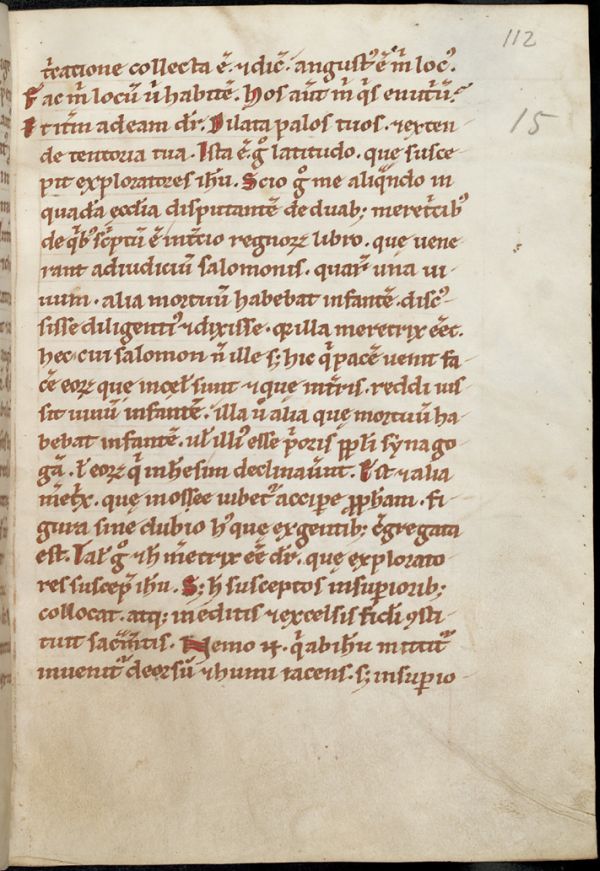 112
15
t̄catione collecta ē. ⁊ dic̄. angust᷒ ē m̄ loc᷒.
Fac m̄ locū ū habitē. Nos aūt m̄ q̄s enut̄ū?
Itit̄m ad eam dr̄. Dilata palos tuos. ⁊ exten-
de tentoria tua. Ista ē. g̊ latitudo. quę susce-
pit exploratores ih̄u. Scio g̊ me aliq̄ndo in
quadā ęcclīa disputantē de duab; meret̄cib᷒
de q̄b᷒ sc̄ptū ē in t̄cio regnoꝝ libro. quę vene-
rant ad iudiciū salomonis. quaꝝ una vi-
vum. alia mortuū habebat infantē. disc᷒-
sisse diligenti᷒ ⁊ dixisse. qr̄ illa meretrix ēēt.
hec cui salomon n̄ ille s; hic q̄ pacē venit fa-
cē eoꝝ quę in cęl̄ sunt ⁊ quę in t̄ris. reddi ius-
sit vivū infantē. illa ū alia quę mortuū ha-
bebat infantē. ul̄ illi᷒ esse p̄oris pp̄li synago-
gā. l̄ eoꝝ q̄ in hęsim declinav̄unt. Est ⁊ alia
m̄et̄x. quę iv̄bet᷒ accipe ꝓph̄am. fi-
gura sine dubio h᷒ quę ex gentib; ꝯgregata
est. Tal̄ g̊ ⁊ h̄ m̄etrix ēē dr̄. quę explorato-
res suscep̄ ih̄u. S; h̄ susceptos in supiorib;
collocat. atq; in editis ⁊ excelsis fidi ꝯsti-
tuit sac̄m̄tis. Nemo n̄. q̄ ab ih̄u mittit᷒
invenit᷒ deorsū ⁊ humi iacens. s; in supio-